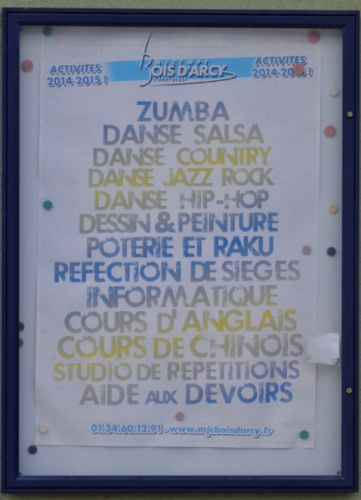 ACTIVITES
2014-2015 !
BOIS D'ARCY
ACTIVITES
2014-2015 !
ZUMBA
DANSE SALSA
DANSE COUNTRY
DANSE JAZZ ROCK
DANSE HIP-HOP
DESSIN & PEINTURE
POTERIE ET RAKU
REFECTION DE SIEGES
INFORMATIQUE
COURS D'ANGLAIS
COURS DE CHINOIS
STUDIO DE REPETITIONS
AIDE AUX DEVOIRS
01.34.60.12.91 - www.mjcboisdarcy.fr